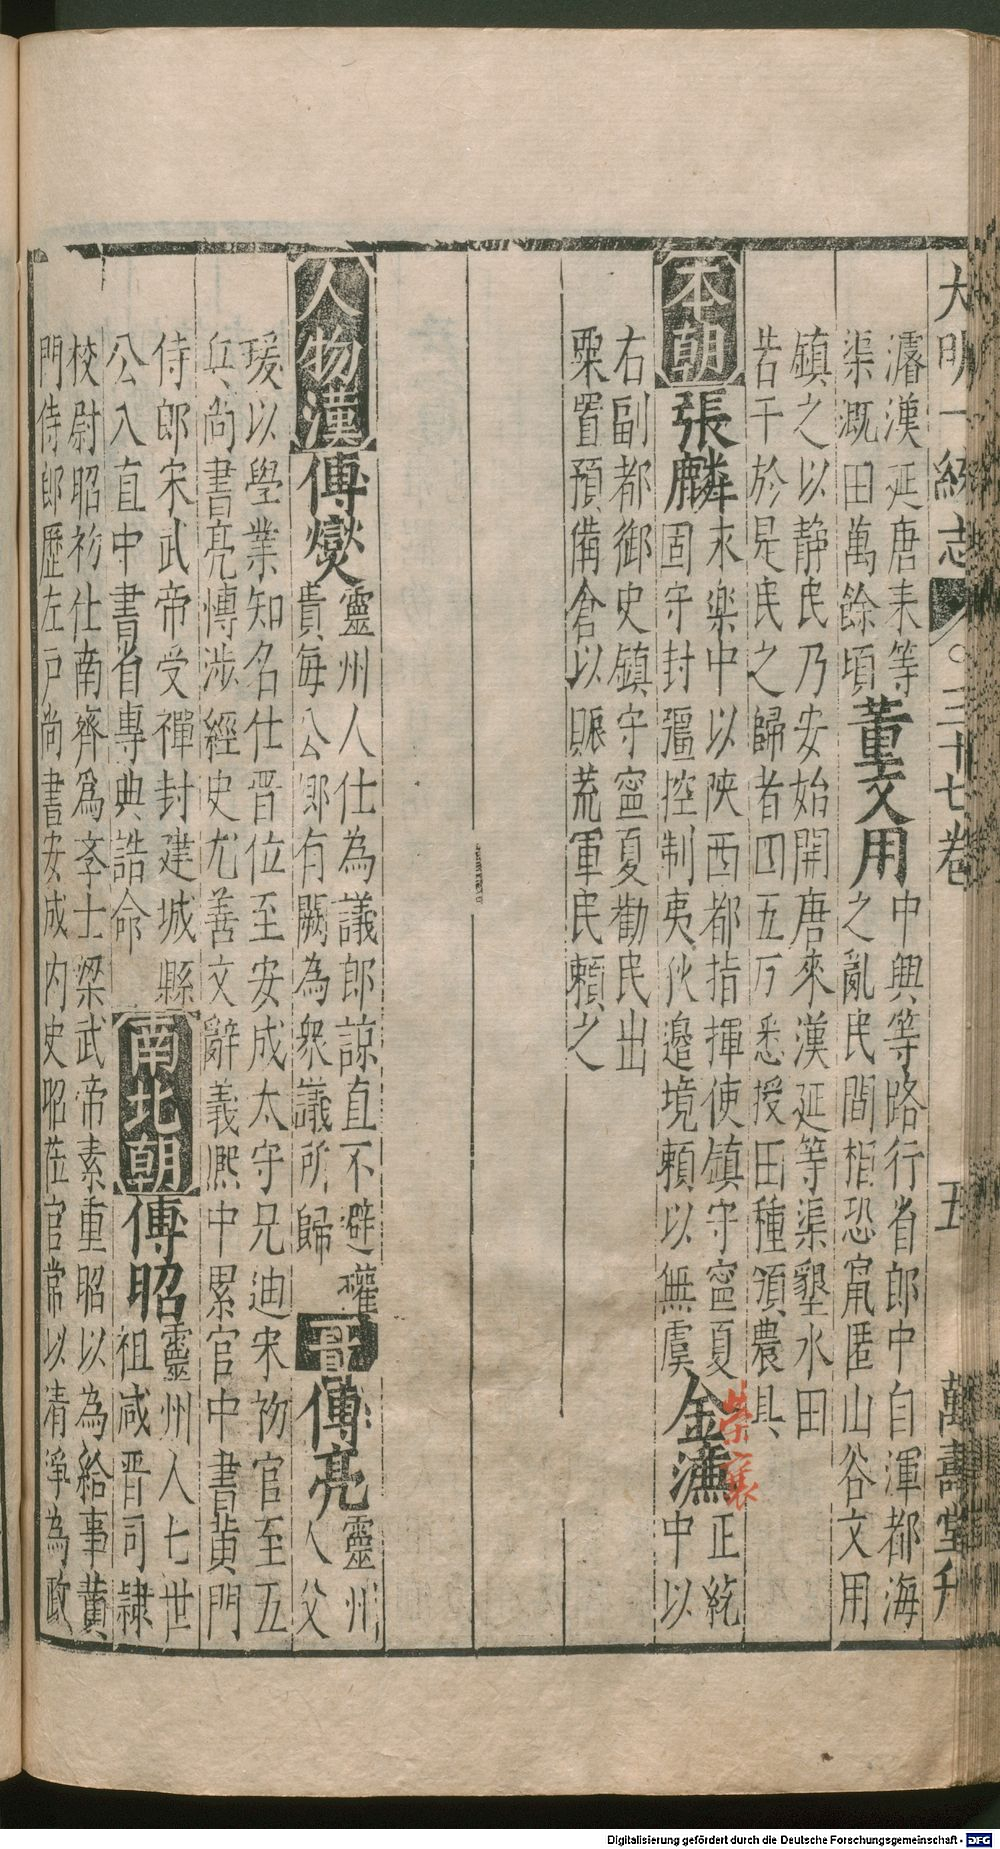 大明一統志 三十七卷 五 萬壽堂刋
濬漢延唐来等
渠溉田萬餘頃
董文用
中興等路行省郎中自渾都海
之亂民間相恐竄匿山谷文用
鎮之以静民乃安始開唐來漢延等渠墾水田
若干於是民之歸者四五万悉授田種頒農具
本朝
張麟
永樂中以陜西都指揮使鎮守寧夏
固守封彊控制夷狄邉境頼以無虞
金濂
榮襄
正統
中以
右副都御史鎮守寧夏勸民出
粟置預備倉以賑荒軍民頼之
人物漢
傅燮
靈州人仕為議郎諒直不避權
貴毎公卿有闕為衆議所歸
晋
傅亮
靈州
人父
瑗以學業知名仕晋位至安成太守兄迪宋初官至五
兵尚書亮博涉經史尤善文辭義熈中累官中書黄門
侍郎宋武帝受禪封建城縣
公入直中書省專典誥命
南北朝
傅昭
靈州人七世
祖咸晋司隸
校尉昭初仕南齊爲李士梁武帝素重昭以為給事黄
門侍郎歷左戸尚書安成内史昭蒞官常以清淨為政
Digitalisierung gefördert durch die Deutsche Forschungsgemeinschaft - DFG